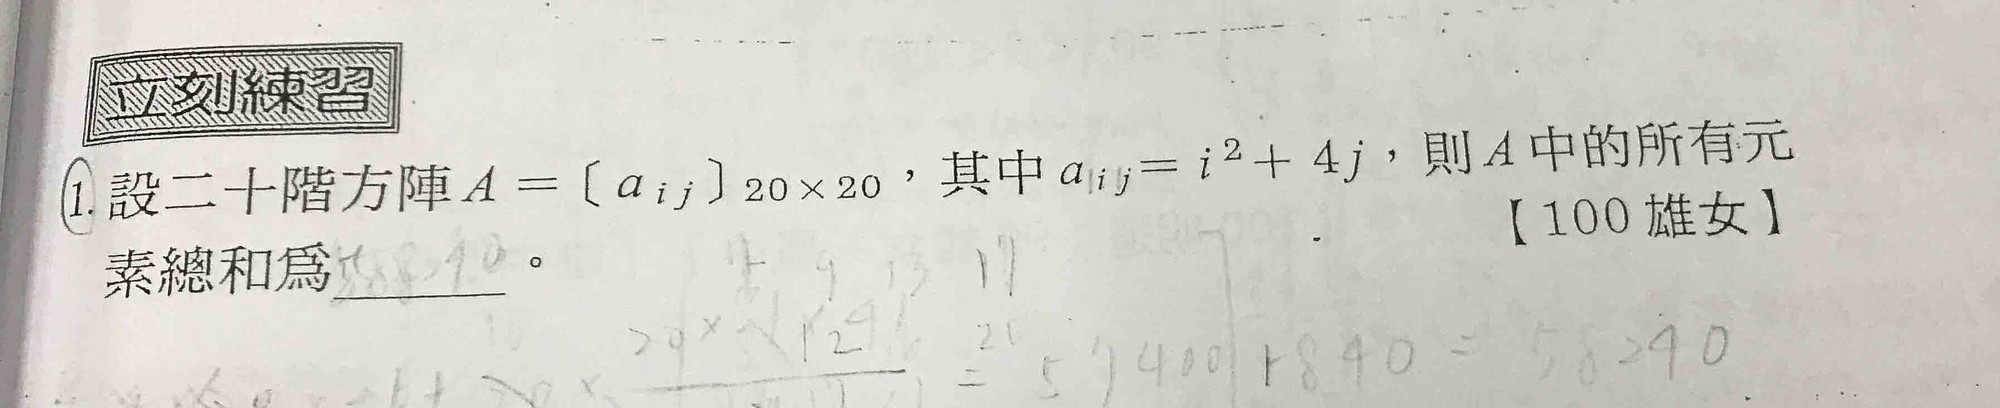 立刻練習
1. 設二十階方陣 A = 〔a_{ij}〕_{20×20}，其中 a_{ij} = i² + 4j，則 A 中的所有元
素總和為 58240 。
【100 雄女】
9 13 17
57400 + 840 = 58240